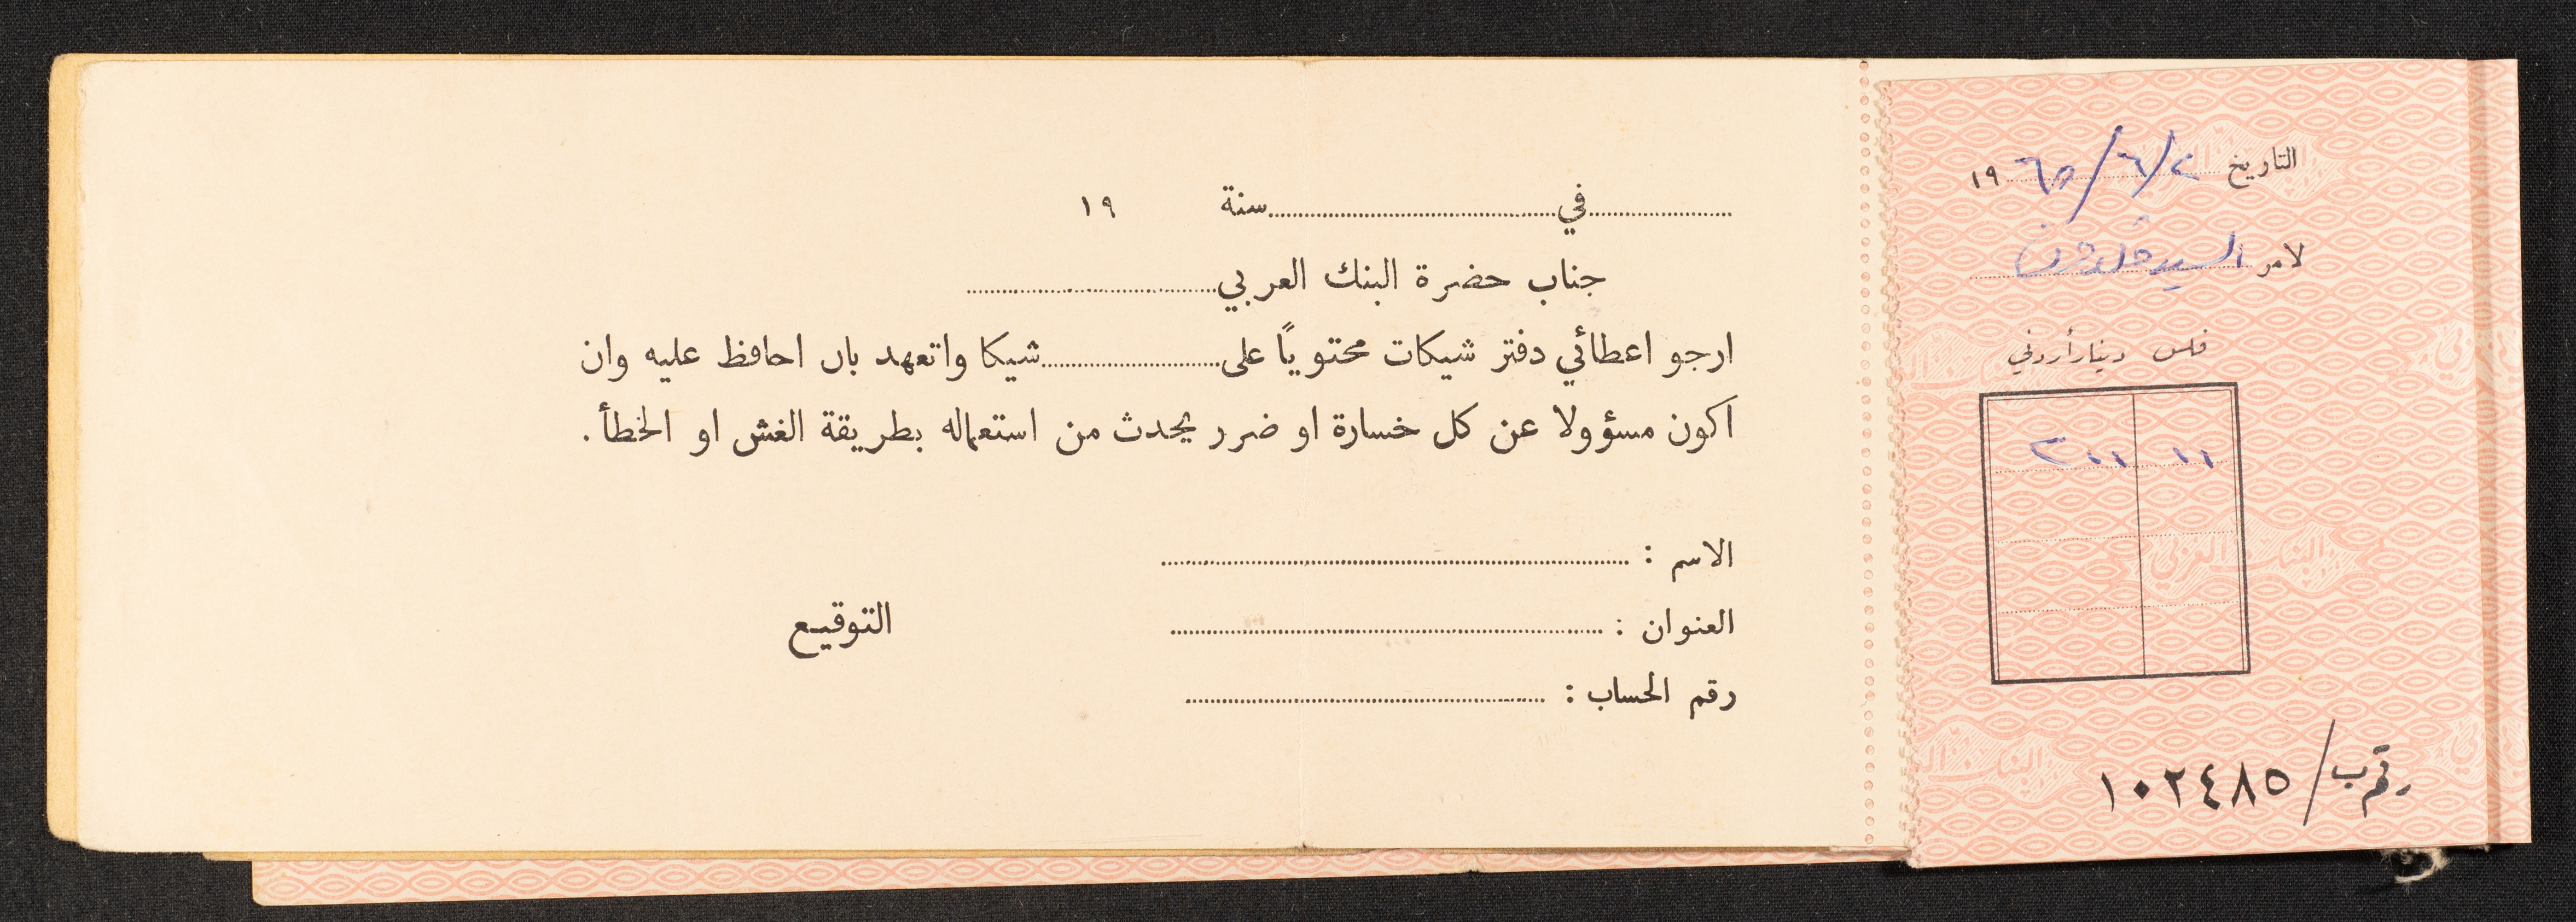 التاريخ ٢/٦/١٩٦٥
لامر السيد
فلس دينار أردني
١١ ٣٠٠
البنك العربي
رقم ب/١٠٢٤٨٥
....................في........................................سنة ١٩
جناب حضرة البنك العربي...................................
ارجو اعطائي دفتر شيكات محتوياً على.........................شيكا واتعهد بان احافظ عليه وان
اكون مسؤولا عن كل خسارة او ضرر يحدث من استعماله بطريقة الغش او الخطأ.
الاسم : ..................................................................
العنوان : .............................................................
التوقيع
رقم الحساب : ...................................................